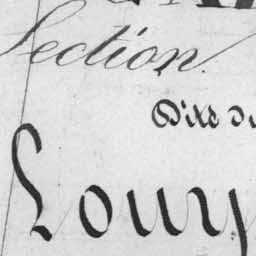 Section.
Dite du
Louy